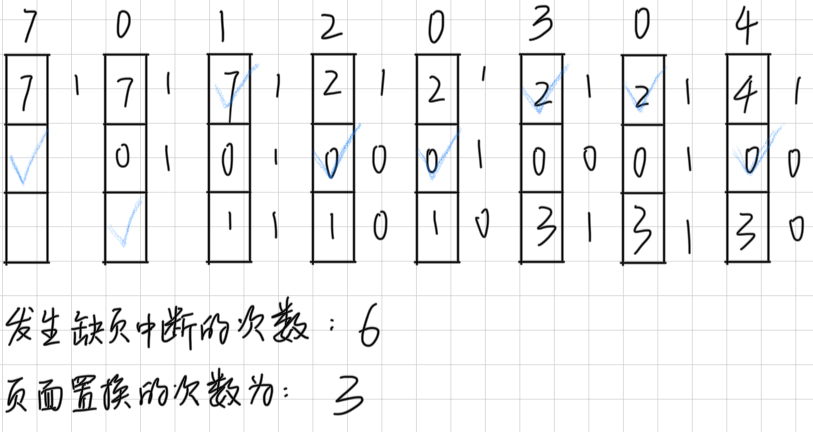 7 0 1 2 0 3 0 4
7 1 7 1 7 1 2 1 2 1 2 1 2 1 4 1
0 1 0 1 0 0 0 1 0 0 0 1 0 0
1 1 1 0 1 0 3 1 3 1 3 0
发生缺页中断的次数：6
页面置换的次数为：3